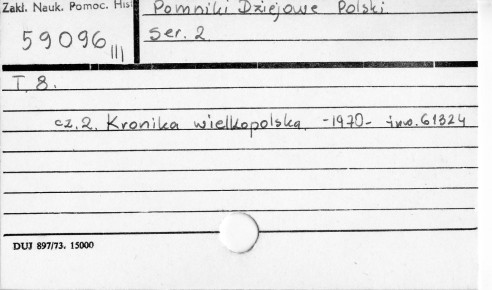 Zakł. Nauk. Pomoc. Hist
Pomniki Dziejowe Polski
59096 III
Ser. 2
T. 8.
cz. 2. Kronika wielkopolska. -1970- inw. 61324
DUJ 897/73. 15000